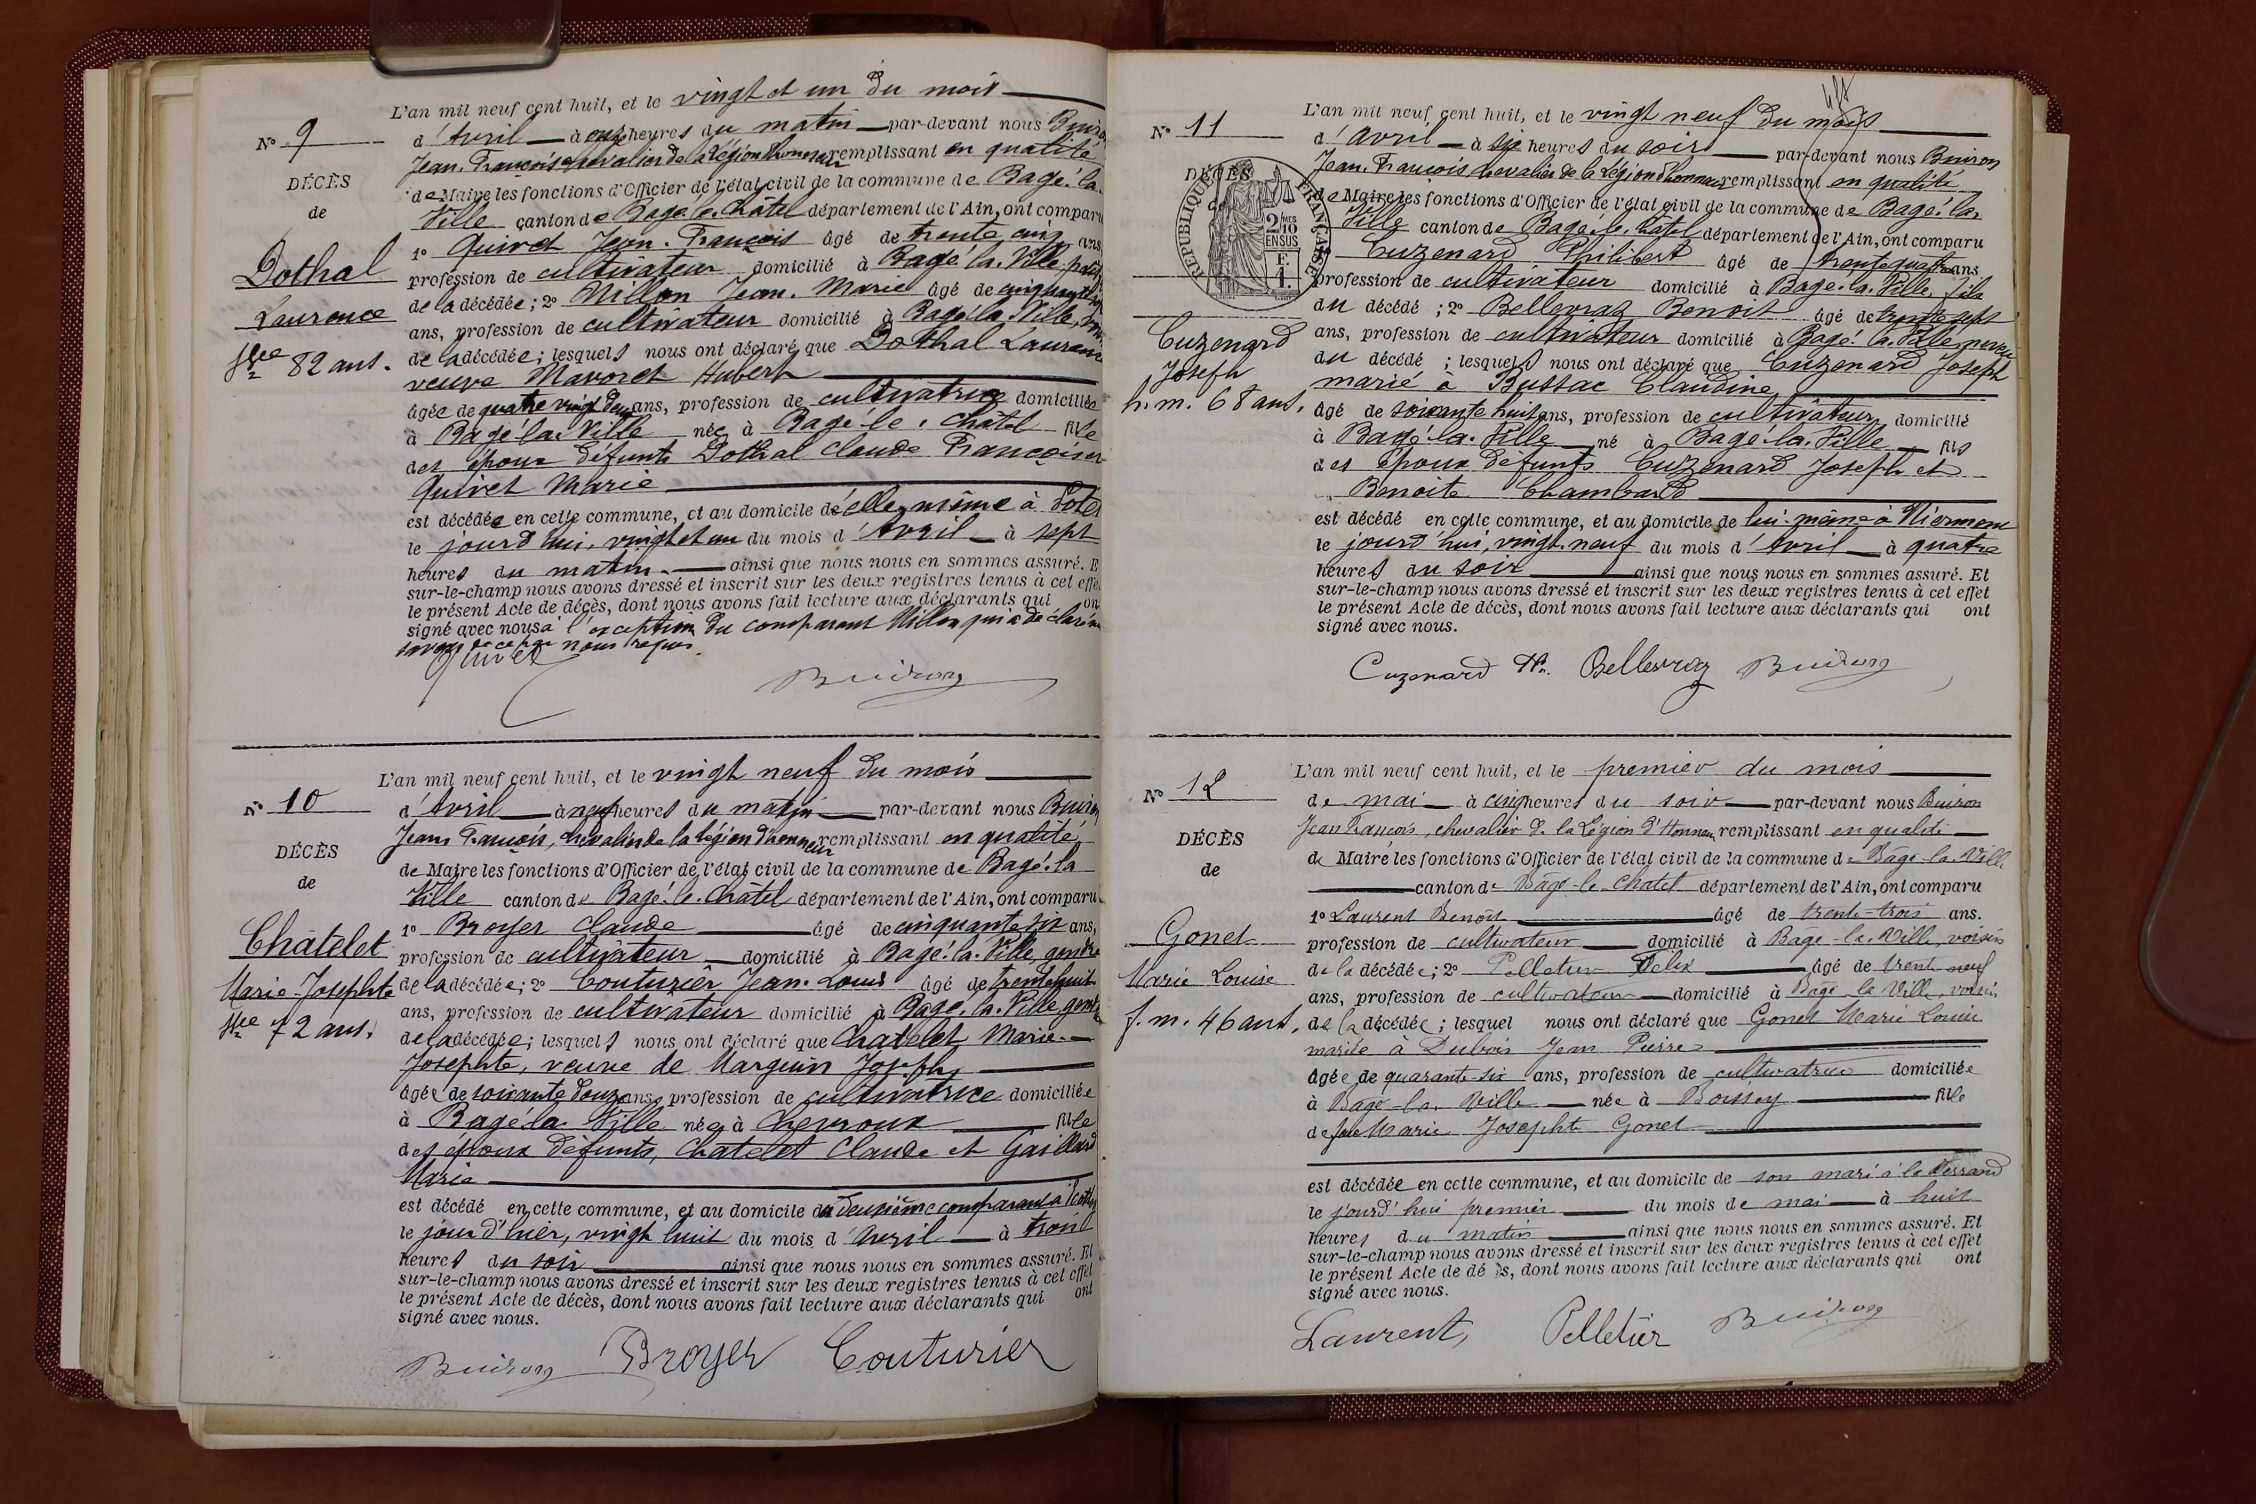 L'an mil neuf cent huit, et le vingt et un du mois
N° 9
d'Avril à onze heures du matin par-devant nous Buiron
Jean-François chevalier de la Légion d'honneur remplissant en qualité
DÉCÈS
de Maire les fonctions d'Officier de l'état civil de la commune de Bagé-la-
de
Ville canton de Bagé-le-Châtel département de l'Ain, ont comparu
1° Quivet Jean-François âgé de trente cinq ans,
Dothal
profession de cultivateur domicilié à Bagé-la-Ville,
de la décédée; 2° Nillon Jean-Marie âgé de
Laurence
ans, profession de cultivateur domicilié à Bagé-la-Ville,
de la décédée; lesquels nous ont déclaré que Dothal Laurence
vve 82 ans.
veuve Mavoret Hubert
âgée de quatre vingt deux ans, profession de cultivatrice domiciliée
à Bagé-la-Ville née à Bagé-le-Châtel fille
des époux défunts Dothal Claude François et
Quivet Marie
est décédée en cette commune, et au domicile d'elle-même à
le jourd'hui, vingt et un du mois d'Avril à sept
heures du matin. ainsi que nous nous en sommes assuré. E
sur-le-champ nous avons dressé et inscrit sur les deux registres tenus à cet effe
le présent Acte de décès, dont nous avons fait lecture aux déclarants qui on
signé avec nous à l'exception du comparant Nillon qui a déclaré ne
savoir de ce par nous requis.
Quivet
Buiron
L'an mil neuf cent huit, et le vingt neuf du mois
N° 10
d'Avril à neuf heures du matin par-devant nous Buiron
Jean-François, chevalier de la Légion d'honneur remplissant en qualité
DÉCÈS
de Maire les fonctions d'Officier de l'état civil de la commune de Bagé-la-
de
Ville canton de Bagé-le-Châtel département de l'Ain, ont comparu
1° Broyer Claude âgé de cinquante six ans,
Châtelet
profession de cultivateur domicilié à Bagé-la-Ville, gendre
Marie-Josephte
de la décédée; 2° Couturier Jean-Louis âgé de trente huit
ans, profession de cultivateur domicilié à Bagé-la-Ville gendre
vve 72 ans.
de la décédée; lesquels nous ont déclaré que Chatelet Marie-
Josephte, veuve de Marguin Joseph
âgée de soixante douze ans, profession de cultivatrice domiciliée
à Bagé-la-Ville née à Chevroux fille
des époux défunts, Chatelet Claude et Gaillard
Marie
est décédé en cette commune, et au domicile du deuxième comparant à
le jour d'hier, vingt huit du mois d'Avril à trois
heures du soir ainsi que nous nous en sommes assuré. Et
sur-le-champ nous avons dressé et inscrit sur les deux registres tenus à cet effet
le présent Acte de décès, dont nous avons fait lecture aux déclarants qui ont
signé avec nous.
Buiron Broyer Couturier
L'an mil neuf cent huit, et le vingt neuf du mois
N° 11
d'Avril à six heures du soir par-devant nous Buiron
Jean-François chevalier de la Légion d'honneur remplissant en qualité
DÉCÈS
de Maire les fonctions d'Officier de l'état civil de la commune de Bagé-la-
Ville canton de Bagé-le-Châtel département de l'Ain, ont comparu
RÉPUBLIQUE FRANÇAISE
2/10 MES
EN SUS
F.
1.
Cuzenard Philibert âgé de trente quatre ans
profession de cultivateur domicilié à Bagé-la-Ville, fils
du décédé; 2° Bellevrag Benoit âgé de trente sept
Cuzenard
ans, profession de cultivateur domicilié à Bagé-la-Ville neveu
Joseph
du décédé; lesquels nous ont déclaré que Cuzenard Joseph
marié à Bussac Claudine
h. m. 68 ans.
âgé de soixante huit ans, profession de cultivateur domicilié
à Bagé-la-Ville né à Bagé-la-Ville fils
des époux défunts Cuzenard Joseph et
Benoite Chambard
est décédé en cette commune, et au domicile de lui-même à
le jourd'hui, vingt-neuf du mois d'Avril à quatre
heures du soir ainsi que nous nous en sommes assuré. Et
sur-le-champ nous avons dressé et inscrit sur les deux registres tenus à cet effet
le présent Acte de décès, dont nous avons fait lecture aux déclarants qui ont
signé avec nous.
Cuzenard Ph. Bellevrag Buiron
L'an mil neuf cent huit, et le premier du mois
N° 12
de mai à cinq heures du soir par-devant nous Buiron
Jean François, chevalier de la Légion d'Honneur remplissant en qualité
DÉCÈS
de Maire les fonctions d'Officier de l'état civil de la commune de Bâgé-la-Ville
de
canton de Bâgé-le-Chatel département de l'Ain, ont comparu
1° Laurent Benoît âgé de trente-trois ans.
Gonet
profession de cultivateur domicilié à Bâgé-la-Ville, voisin
Marie Louise
de la décédée; 2° Pelletier Félix âgé de trente neuf
ans, profession de cultivateur domicilié à Bâgé-la-Ville, voisin
f. m. 46 ans.
de la décédée; lesquel nous ont déclaré que Gonet Marie Louise
mariée à Dubois Jean Pierre
âgée de quarante-six ans, profession de cultivatrice domiciliée
à Bâgé-la-Ville née à Boissey fille
de Marie Josephte Gonet
est décédée en cette commune, et au domicile de son mari à
le jourd'hui premier du mois de mai à huit
heures du matin ainsi que nous nous en sommes assuré. Et
sur-le-champ nous avons dressé et inscrit sur les deux registres tenus à cet effet
le présent Acte de dé s, dont nous avons fait lecture aux déclarants qui ont
signé avec nous.
Laurent, Pelletier Buiron